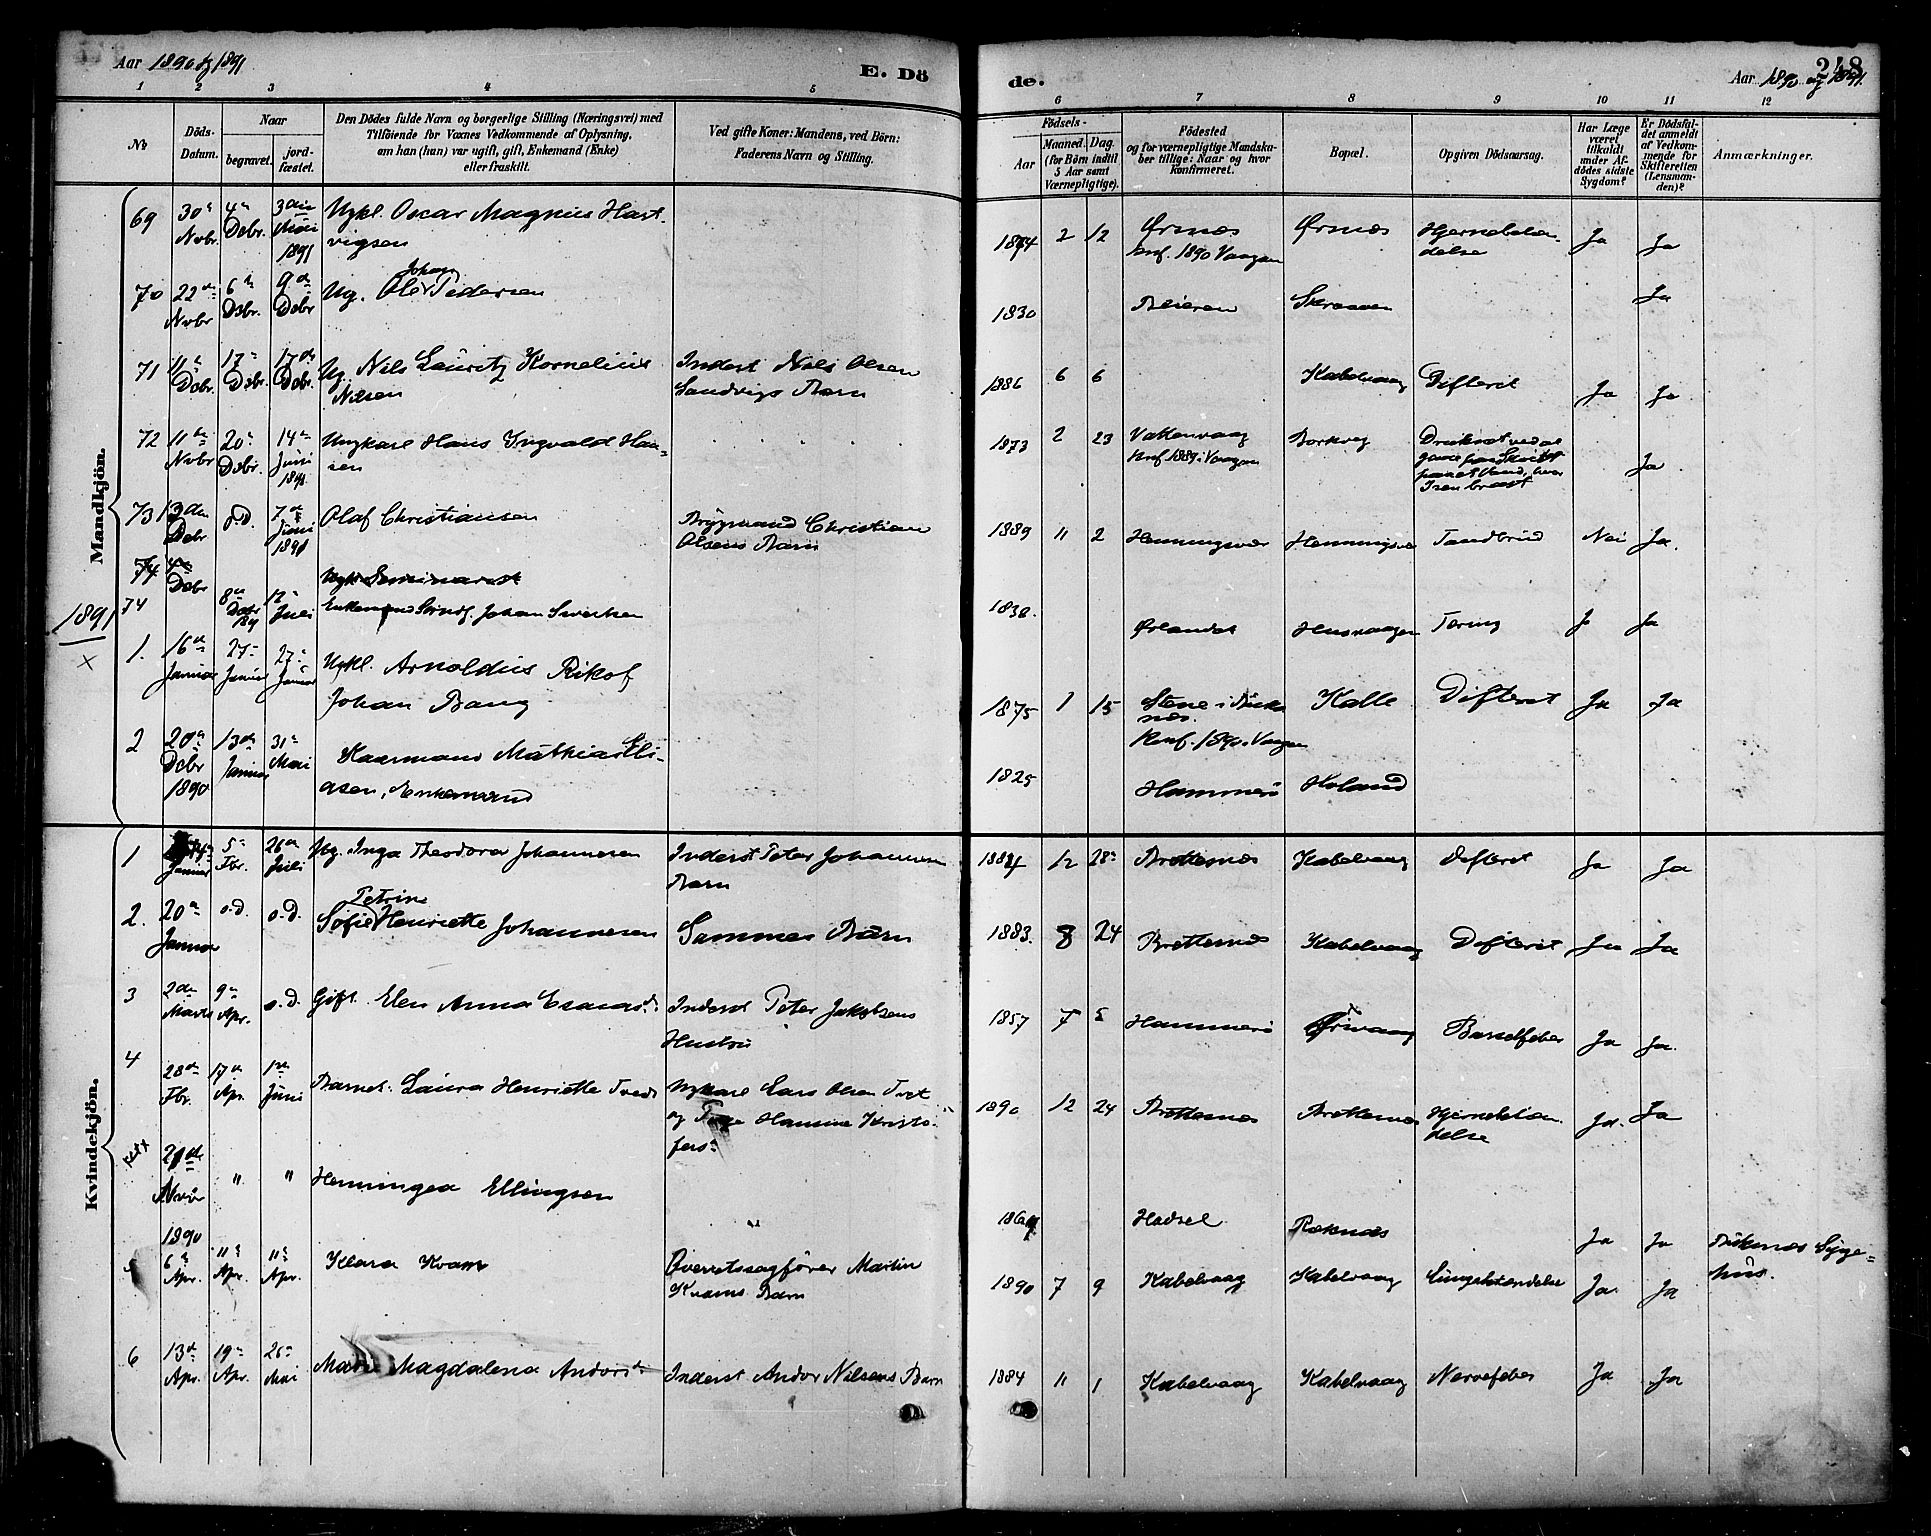 Aar 1890 og 1891
E. Dö
de.
Aar 1890 og 1891.
248
1 2 3 4 5 6 7 8 9 10 11 12
No
Döds-
Datum.
Naar
begravet.
jord-
fæstet.
Den Dödes fulde Navn og borgerlige Stilling (Næringsvei) med
Tilföiende for Voxnes Vedkommende af Oplysning,
om han (hun) var ugift, gift, Enkemand (Enke)
eller fraskilt.
Ved gifte Koner: Mandens, ved Börn:
Faderens Navn og Stilling.
Födsels-
Aar
Maaned. Dag.
(for Börn indtil
5 Aar samt
Værnepligtige).
Födested
og for værnepligtige Mandska-
ber tillige: Naar og hvor
konfirmeret.
Bopæl.
Opgiven Dödsaarsag.
Har Læge
været
tilkaldt
under Af-
dödes sidste
Sygdom?
Er Dödsfal-
det anmeldt
af Vedkom-
mende for
Skifteretten
(Lensman-
den)?
Anmærkninger.
Mandkjön.
69 30 Novbr. 4 Debr. 3die Mai 1891 Ugkl. Oscar Magnus Hart-
vigsen
1874 2 12 Ørnæs Ørnæs Hjernebetæn-
delse Ja Ja
konf. 1890 Vaagan
70 22 Novbr 6 Debr. 9 Debr Ug. Ole Johan Pedersen
1830 Beieren Skraaven Ja
71 11 Debr. 17 Debr. 17 Debr. Ug. Nils Lauritz Kornelius
Nilsen
Inderst Nils Olsen
Sandvigs Barn
1886 6 6 Kabelvaag Difterit Ja Ja
72 11 Novbr 20 Debr. 14 Juni 1891. Ungkarl Hans Ingvald Han-
sen
1873 2 23 Vatenvaag Borkveg Druknet ved at
gaae paa Skøiter
paa et Vand, hvor
Isen brast
Konf. 1889 i Vaagan Ja
73 13 Debr o.D. 7 Juni 1891 Olaf Christiansen
Brygmand Christian
Olsens Barn
1889 11 2 Henningsvær Henningsvær Tandbrud Nei Ja.
74 4 Debr Ugk. Seminarist
74 8 Debr 12 Juli Enkemand Johan Sivertsen
1838. Ørlandet Husvaagen Tæring Ja
1891
x
1. 16 Januar 27 Januar 27 Januar Ugkl. Arnoldus Rikof
Johan Bang
1875 1 15 Stene i Buks-
næs. Kalle Difterit Ja Ja
Konf. 1890 i Vaagan
2 20 Debr 1890 13 Januar 31 Mai Kaarmand Mathias Eli-
asen, Enkemand
1825 Hammerö Holand
Kvindekjön.
1 14 Januar 5 Fbr. 26 Juli Ug. Inga Theodora Johannesen
Inderst Peter Johannesen
Barn
1884 12 28 Brettesnæs Kabelvaag Difterit Ja Ja
2. 20 Januar o.d. o.d. Sofie Petrine Henriette Johannesen
Sammes Barn
1883. 8 24 Brettesnæs Kabelvaag Difterit Ja Ja
3 2 Marts 9 Apr. o.d. Gift Elen Anna Esaiasd.
Inderst Peter Jakobsens
Hustru
1857 7 5 Hammerö Ørsvaag Barselfeber Ja Ja.
4 28 Fbr. 17 Apr. 1 Juni Barnet Laura Henriette Tvedt
Ugkarl Lars Olsen Tvet
og Pige Hansine Kristo-
fers.
1890 12 24 Brettesnæs Brettesnæs Hjernebetæn-
delse Ja. Ja
21 Novbr 1890 " " Henningea Ellingsen
1864 Hadsel Røknæs Ja Ja Buknæs Syge-
hus.
5 6 Apr. 11 Apr. 11 Apr. Klara Kvam
Overretssagfører Martin
Kvams Barn
1890 7 9 Kabelvaag Kabelvaag Lungebetændelse Ja. Ja
6 13 Apr. 19 Apr. 26 Mai Marie Magdalena Andorsd.
Inderst Andor Nilsens Barn
1884 11 1 Kabelvaag Kabelvaag Nervefeber Ja Ja